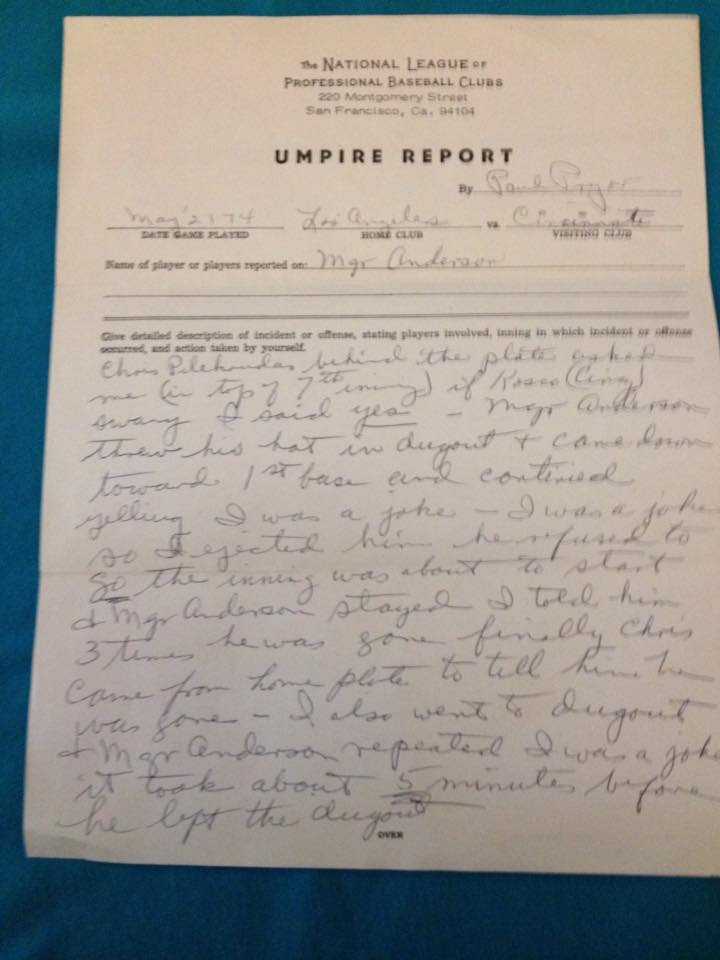 The NATIONAL LEAGUE OF
PROFESSIONAL BASEBALL CLUBS
220 Montgomery Street
San Francisco, Ca. 94104
UMPIRE REPORT
By Paul Pryor
May 21 74 Los Angeles vs. Cincinnati
DATE GAME PLAYED HOME CLUB VISITING CLUB
Name of player or players reported on: Mgr Anderson
Give detailed description of incident or offense, stating players involved, inning in which incident or offense
occurred, and action taken by yourself.
Chris Pelekoudas behind the plate asked
me (in top of 7th inning) if (Cinci)
swang I said yes - Mgr Anderson
threw his hat in dugout + came down
toward 1st base and contined
yelling I was a joke - I was a joke
so I ejected him he refused to
go the inning was about to start
+ Mgr Anderson stayed I told him
3 times he was gone finally Chris
came from home plate to tell him he
was gone - I also went to dugout
+ Mgr Anderson repeated I was a joke
it took about 5 minutes before
he left the dugout
OVER